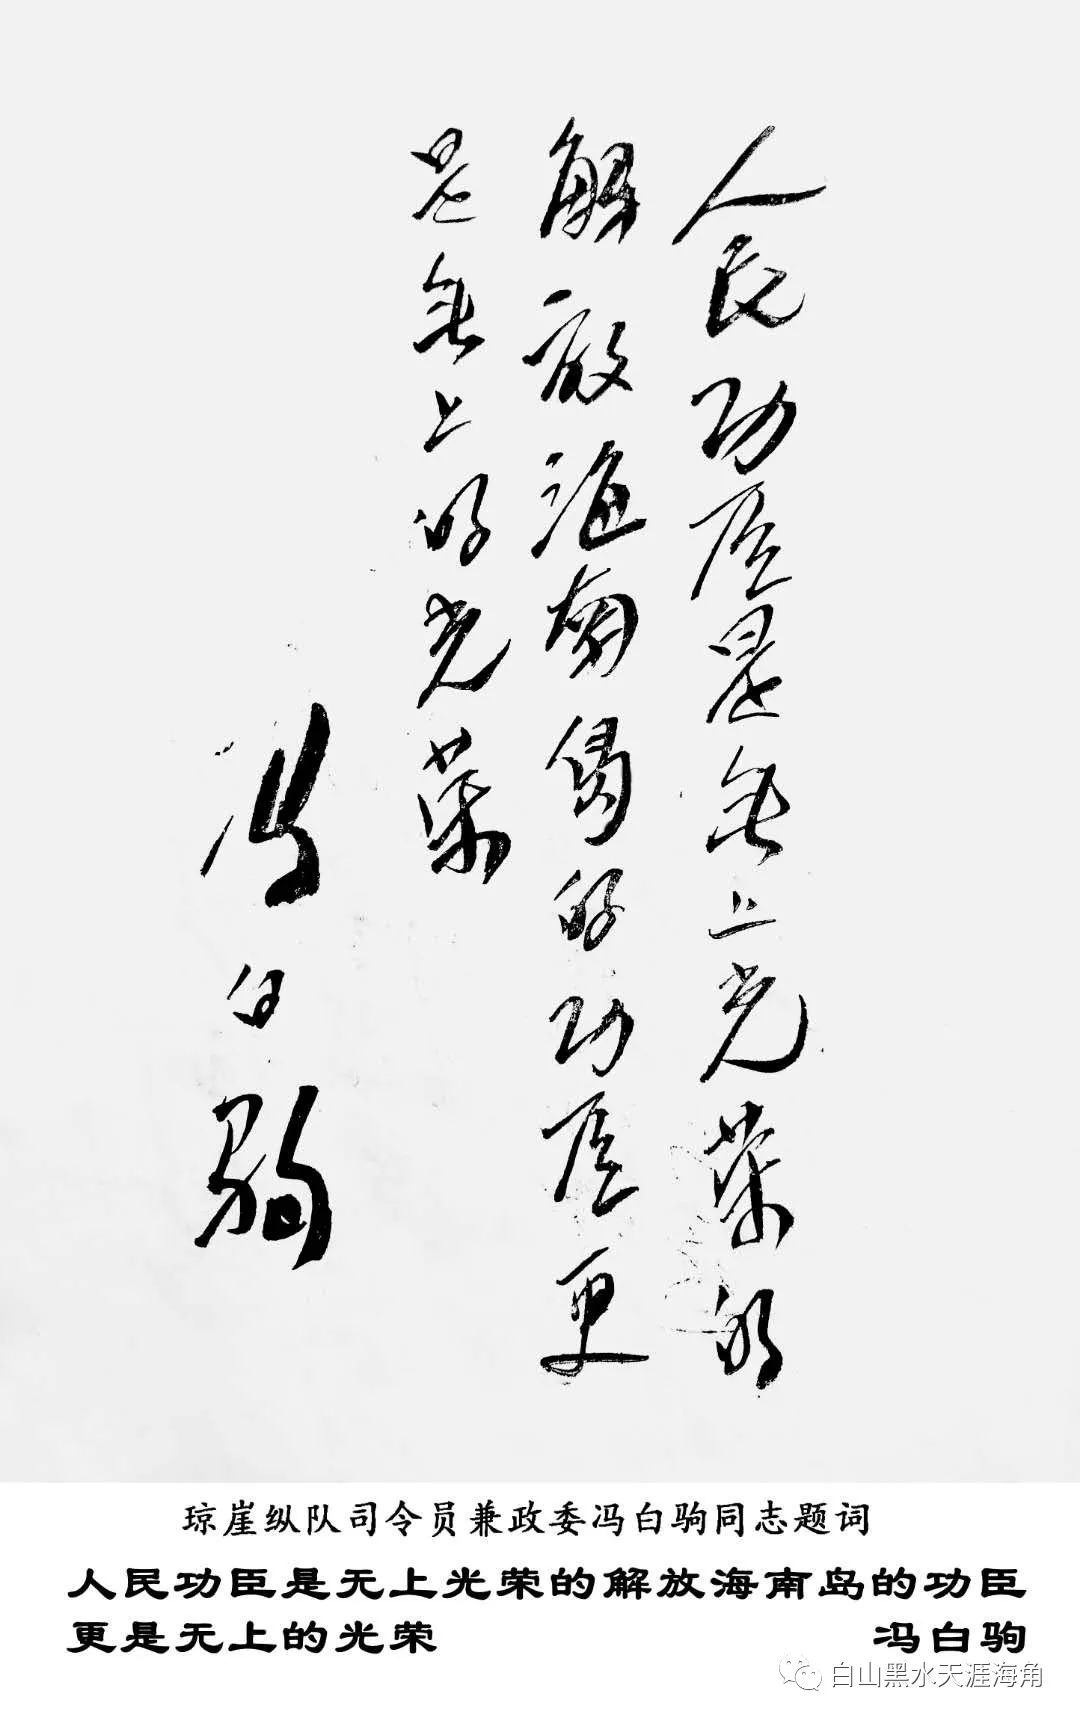 人民功臣是無上光荣的
解放海南岛的功臣更
是無上的光荣
冯白驹
琼崖纵队司令员兼政委冯白驹同志题词
人民功臣是无上光荣的解放海南岛的功臣
更是无上的光荣 冯白驹
白山黑水天涯海角